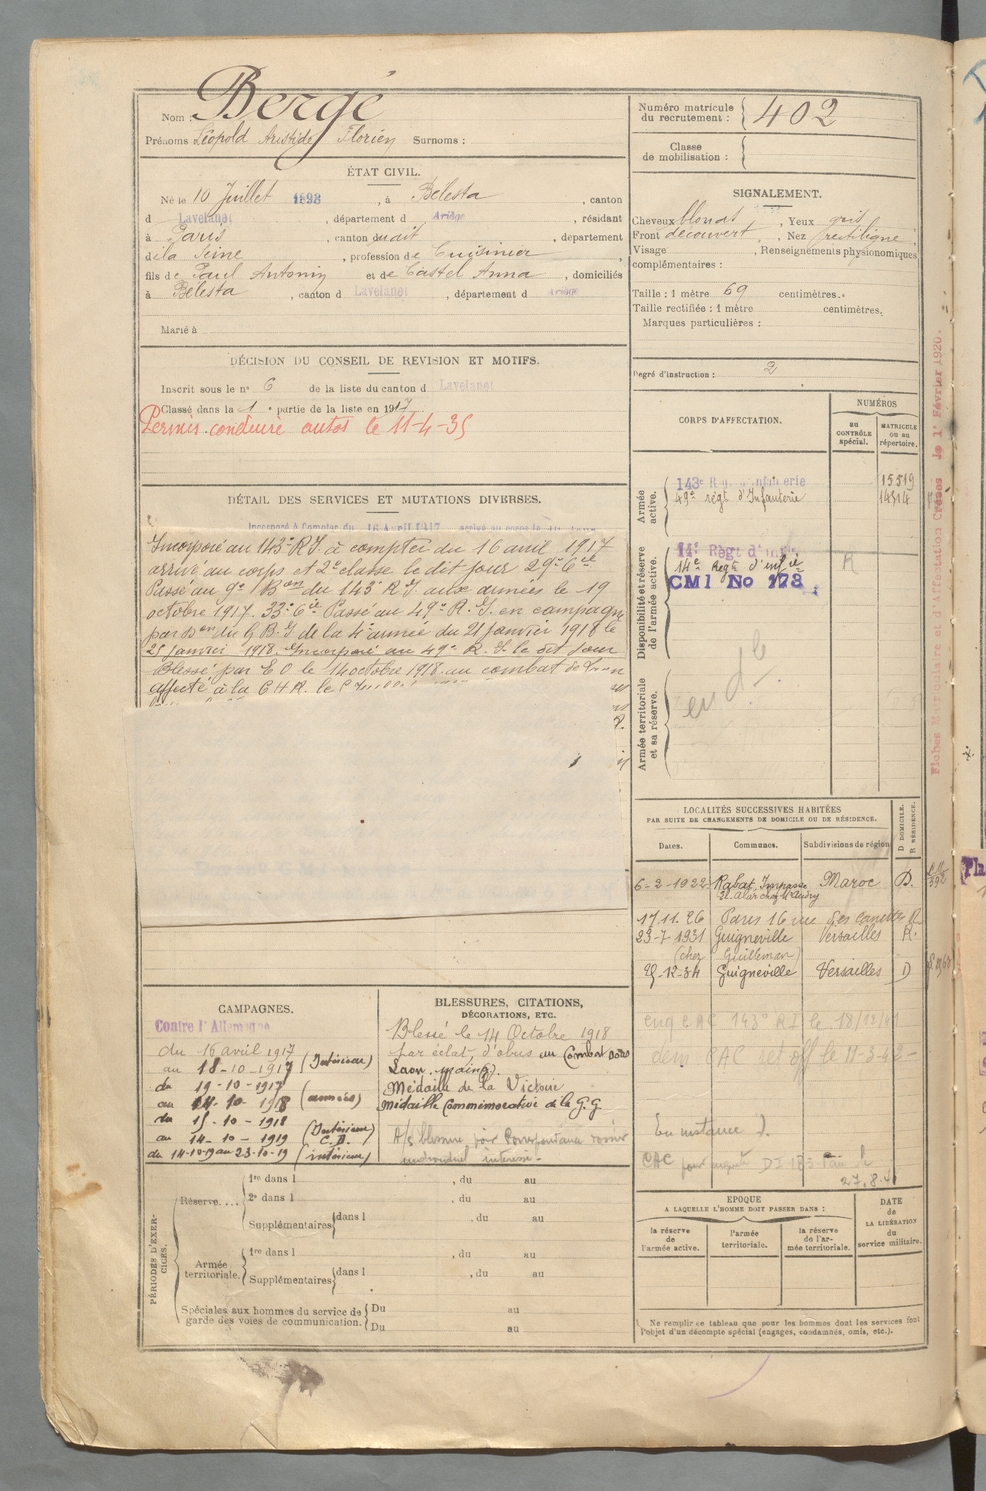 Nom Bergé
Prénoms Léopold Aristide Florien Surnoms :
ÉTAT CIVIL.
Né le 10 Juillet 1898, à Bélesta, canton
d Lavelanet, département d Ariège, résidant
à Paris, canton dudit, département
de la Seine, profession de Cuisinier
fils de Paul Antonin et de Castel Anna, domiciliés
à Bélesta, canton d Lavelanet, département d Ariège
Marié à
DÉCISION DU CONSEIL DE REVISION ET MOTIFS.
Inscrit sous le n° 6 de la liste du canton d Lavelanet
Classé dans la 1e partie de la liste en 1917
Permis conduire autos le 11-4-35
DÉTAIL DES SERVICES ET MUTATIONS DIVERSES.
Incorporé à Compter du 16 Avril 1917 arrivé au corps le
Incorporé au 143e R.I. à compter du 16 avril 1917
arrivé au corps et 2e classe le dit jour 29e Cie
Passé au 9e Bon du 143 R.I. aux armées le 19
octobre 1917. 33e Cie Passé au 49e R.I. en campagne
par Don du G.B.I. de la 4e armée du 21 Janvier 1918 le
25 Janvier 1918. Incorporé au 49e R.I. le dit jour
Blessé par E O le 14 octobre 1918 au combat de
affecté à la C H R. le
CAMPAGNES.
Contre l'Allemagne
du 16 avril 1917
au 18-10-1917 (Intérieur)
du 19-10-1917
au 14-10-1918 (armées)
du 15-10-1918
au 14-10-1919 (Intérieur C.D.
du 14-10-19 au 23-10-19 (intérieur)
BLESSURES, CITATIONS,
DÉCORATIONS, ETC.
Blessé le 14 Octobre 1918
par éclat d'obus au Combat
Laon
Médaille de la Victoire
Médaille Commémorative de la G.G.
A/s blessure, voir Correspondance dossier
individuel intéressé.
PÉRIODES D'EXERCICES.
Réserve....
1re dans l , du au
2e dans l , du au
Supplémentaires dans l , du au
Armée territoriale.
1re dans l , du au
Supplémentaires dans l , du au
Spéciales aux hommes du service de garde des voies de communication.
Du au
Du au
Numéro matricule
du recrutement : 402
Classe
de mobilisation :
SIGNALEMENT.
Cheveux blonds, Yeux gris
Front découvert, Nez rectiligne
Visage , Renseignements physionomiques
complémentaires :
Taille : 1 mètre 69 centimètres.
Taille rectifiée : 1 mètre centimètres.
Marques particulières :
Degré d'instruction : 2
CORPS D'AFFECTATION.
NUMÉROS
au CONTRÔLE spécial.
MATRICULE ou au répertoire.
Armée active.
143e Rgt d'Infanterie 15519
49e régt d'Infanterie 14514
Disponibilité et réserve de l'armée active.
14e Régt d'infie
14e Régt d'infie R
CMI No 178
Armée territoriale et sa réserve.
LOCALITÉS SUCCESSIVES HABITÉES
PAR SUITE DE CHANGEMENTS DE DOMICILE OU DE RÉSIDENCE.
Dates. Communes. Subdivisions de région D DOMICILE. R RÉSIDENCE.
6-2-1922 Rabat, Impasse Maroc D.
17.11.26 Paris 16 rue des canettes R
23-7-1931 Guigneville Versailles R.
(chez Guilleman)
25-12-34 Guigneville Versailles D
CAC 143e RI le
dem. CAC
En instance
CAC
27.8.41
EPOQUE
A LAQUELLE L'HOMME DOIT PASSER DANS :
la réserve de l'armée active.
l'armée territoriale.
la réserve de l'armée territoriale.
DATE de LA LIBÉRATION du service militaire.
Ne remplir ce tableau que pour les hommes dont les services font
l'objet d'un décompte spécial (engagés, condamnés, omis, etc.).
d'Affectation Créées le 1er Février 1926.